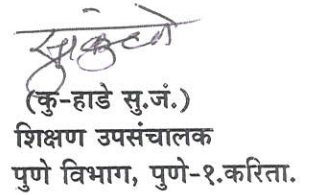 (कु-हाडे सु.जं.)
शिक्षण उपसंचालक
पुणे विभाग, पुणे-१.करिता.